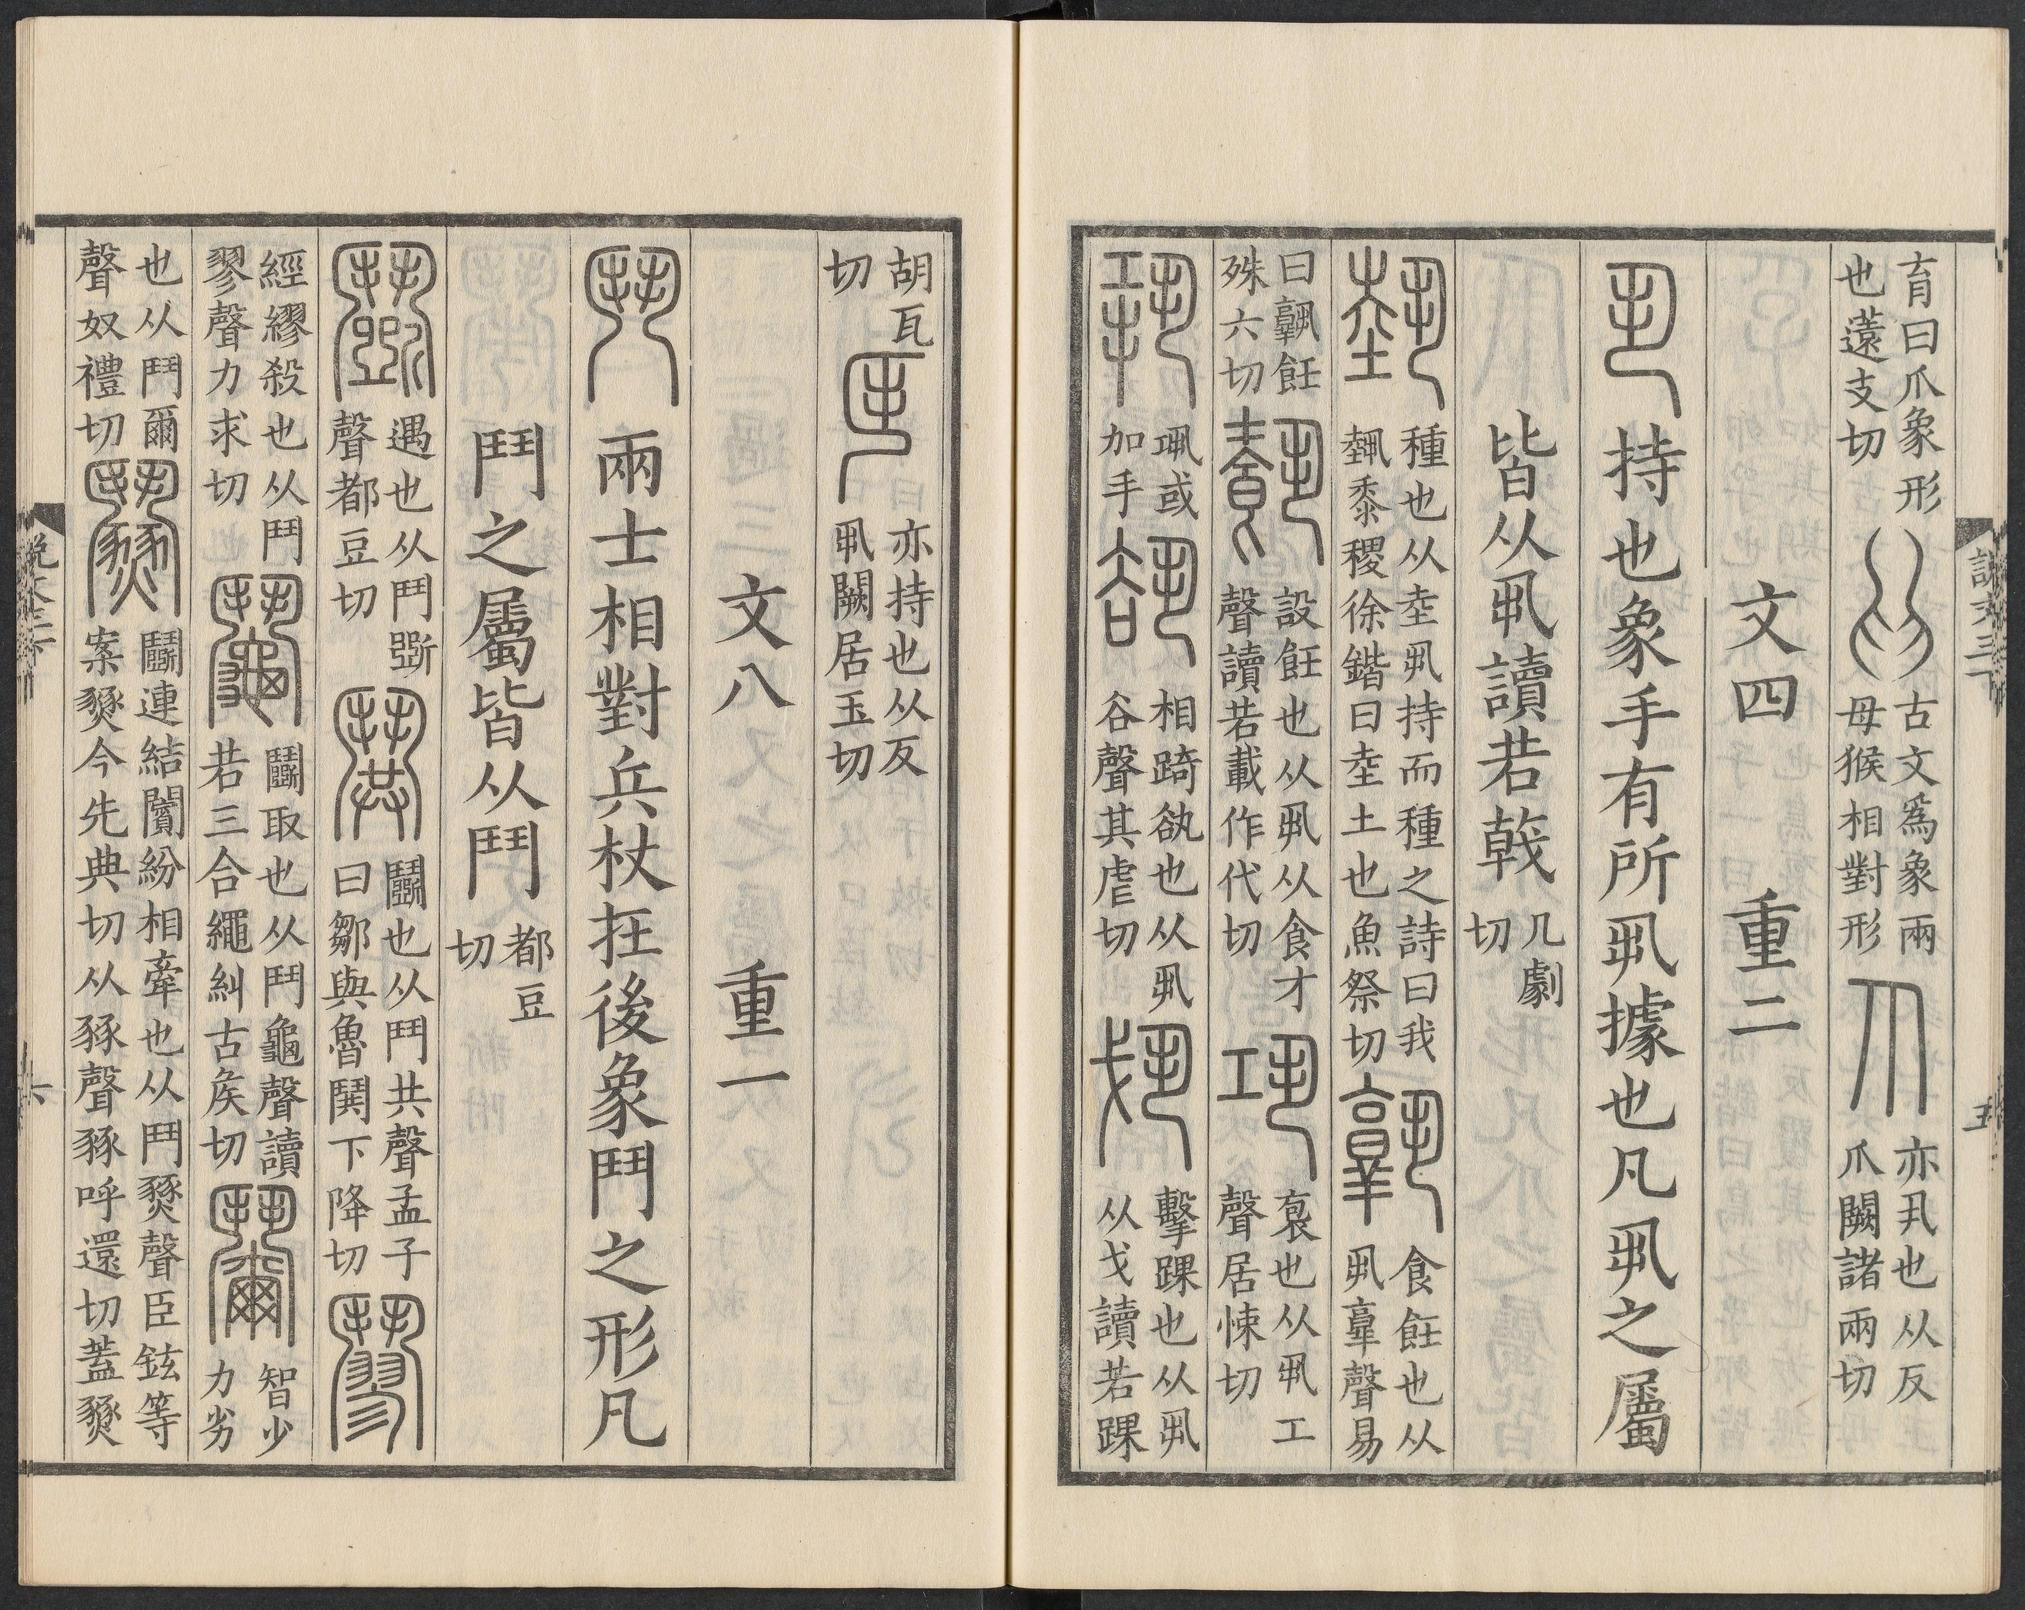 育曰爪象形
也薳支切
古文爲象兩
母猴相對形
亦丮也从反
爪闕諸兩切
文四　重二
持也象手有所丮據也凡丮之屬
皆从丮讀若戟
几劇
切
種也从坴丮持而種之詩曰我
埶黍稷徐鍇曰坴土也魚祭切
食飪也从
丮𦎫聲易
曰𩱛飪
殊六切
設飪也从丮从食才
聲讀若載作代切
𢙇也从丮工
聲居悚切
巩或
加手
相踦𧮰也从丮
谷聲其虐切
擊踝也从丮
从戈讀若踝
胡瓦
切
亦持也从反
丮闕居玉切
文八　重一
兩士相對兵杖在後象鬥之形凡
鬥之屬皆从鬥
都豆
切
遇也从鬥斲
聲都豆切
鬭也从鬥共聲孟子
曰鄒與魯鬨下降切
經繆殺也从鬥
翏聲力求切
鬭取也从鬥龜聲讀
若三合繩糾古矦切
智少
力劣
也从鬥爾
聲奴禮切
鬭連結闠紛相牽也从鬥燹聲臣鉉等
案燹今先典切从豩聲豩呼還切蓋燹
說文三下
五
說文三下
六